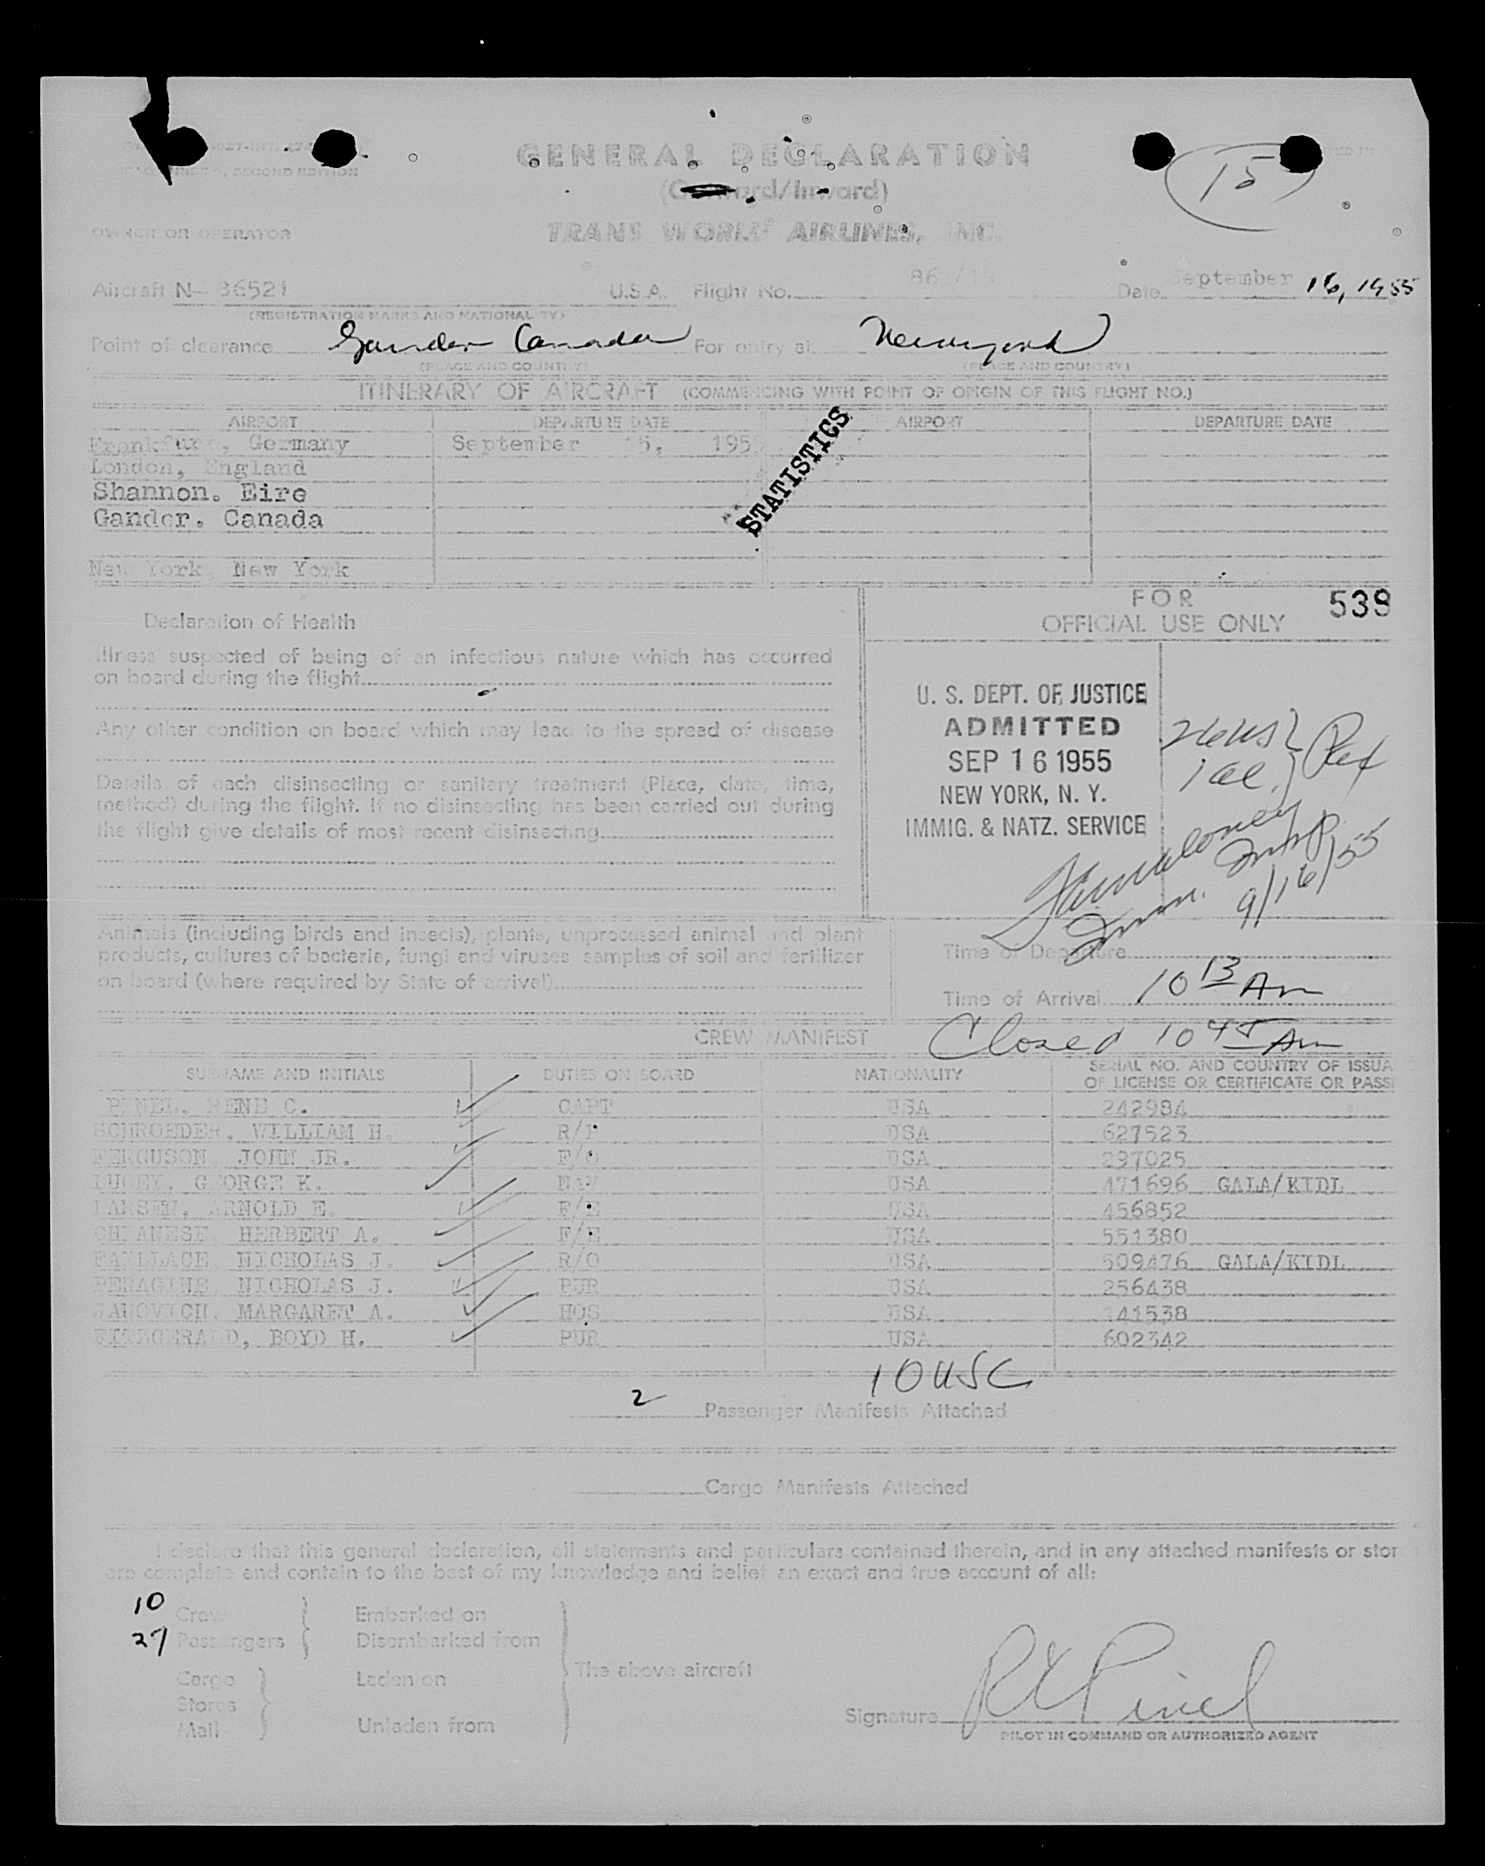 GENERAL DECLARATION
(Outward/Inward)
15
OWNER OR OPERATOR
TRANS WORLD AIRLINES, INC.
Aircraft N- 86521 U.S.A. Flight No. 86 Date September 16, 1955
(REGISTRATION MARKS AND NATIONALITY)
Point of clearance Gander Canada For entry at Newyork
(PLACE AND COUNTRY) (PLACE AND COUNTRY)
ITINERARY OF AIRCRAFT (COMMENCING WITH POINT OF ORIGIN OF THIS FLIGHT NO.)
AIRPORT DEPARTURE DATE AIRPORT DEPARTURE DATE
Frankfurt, Germany September 15, 1955
London, England
Shannon. Eire
Gander. Canada
New York, New York
STATISTICS
FOR
OFFICIAL USE ONLY
539
Declaration of Health
Illness suspected of being of an infectious nature which has occurred
on board during the flight
Any other condition on board which may lead to the spread of disease
Details of each disinsecting or sanitary treatment (Place, date, time,
method) during the flight. If no disinsecting has been carried out during
the flight give details of most recent disinsecting
U. S. DEPT. OF JUSTICE
ADMITTED
SEP 16 1955
NEW YORK, N. Y.
IMMIG. & NATZ. SERVICE
26 US
1 al
Imm. Insp.
9/16/55
Animals (including birds and insects), plants, unprocessed animal and plant
products, cultures of bacteria, fungi and viruses, samples of soil and fertilizer
on board (where required by State of arrival)
Time of Departure
Time of Arrival 10 13 Am
Closed 10 45 Am
CREW MANIFEST
SURNAME AND INITIALS DUTIES ON BOARD NATIONALITY SERIAL NO. AND COUNTRY OF ISSUA
OF LICENSE OR CERTIFICATE OR PASS
PINEL, RENE C. CAPT USA 242984
SCHROEDER, WILLIAM H. R/P USA 627523
FERGUSON, JOHN JR. F/O USA 297025
LUCEY, GEORGE K. NAV USA 471696 GALA/KIDL
LARSEN, ARNOLD E. F/E USA 456852
HERBERT A. F/E USA 551380
FAILLACE NICHOLAS J. R/O USA 509476 GALA/KIDL
PERAGINE, NICHOLAS J. PUR USA 256438
JANOVICH, MARGARET A. HOS USA 141538
FITZGERALD, BOYD H. PUR USA 602342
10 USC
2 Passenger Manifests Attached
Cargo Manifests Attached
I declare that this general declaration, all statements and particulars contained therein, and in any attached manifests or stor
are complete and contain to the best of my knowledge and belief an exact and true account of all:
10 Crew
27 Passengers
Embarked on
Disembarked from
Cargo
Stores
Mail
Laden on
Unladen from
The above aircraft
Signature R C Pinel
PILOT IN COMMAND OR AUTHORIZED AGENT